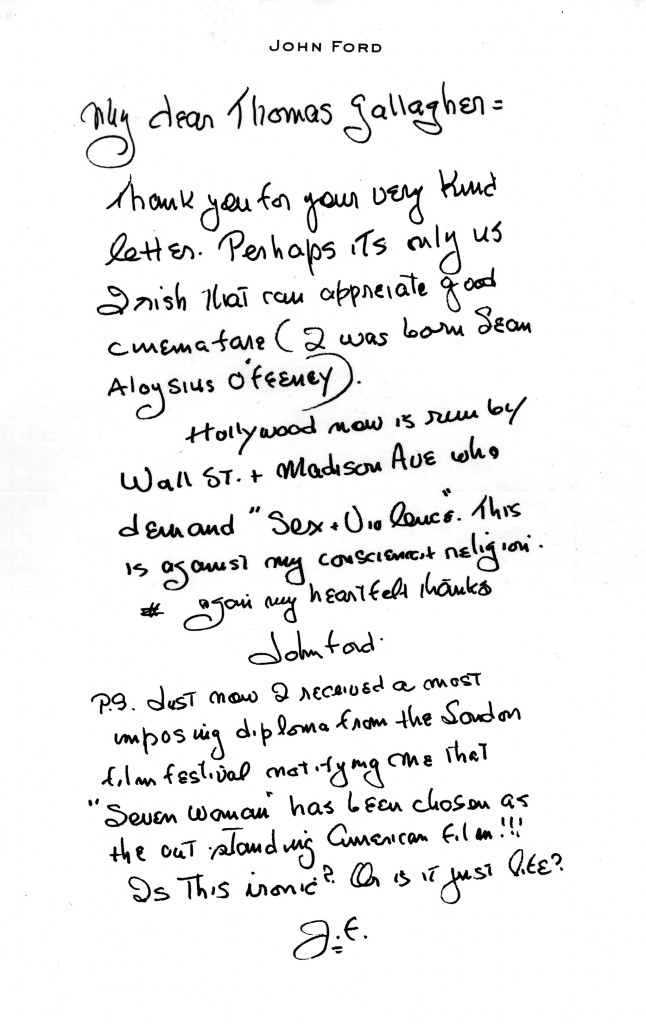 JOHN FORD
My dear Thomas Gallagher =
Thank you for your very kind
letter. Perhaps its only us
Irish that can appreciate good
cinemafare (I was born Sean
Aloysius O'Feeney).
Hollywood now is run by
Wall St. + Madison Ave who
demand "Sex + Violence". This
is against my conscience + religion.
# again my heartfelt thanks
John Ford.
P.S. Just now I received a most
imposing diploma from the London
film festival notifying me that
"Seven Woman" has been chosen as
the out standing American film!!!
Is this ironic? Or is it just life?
J.F.